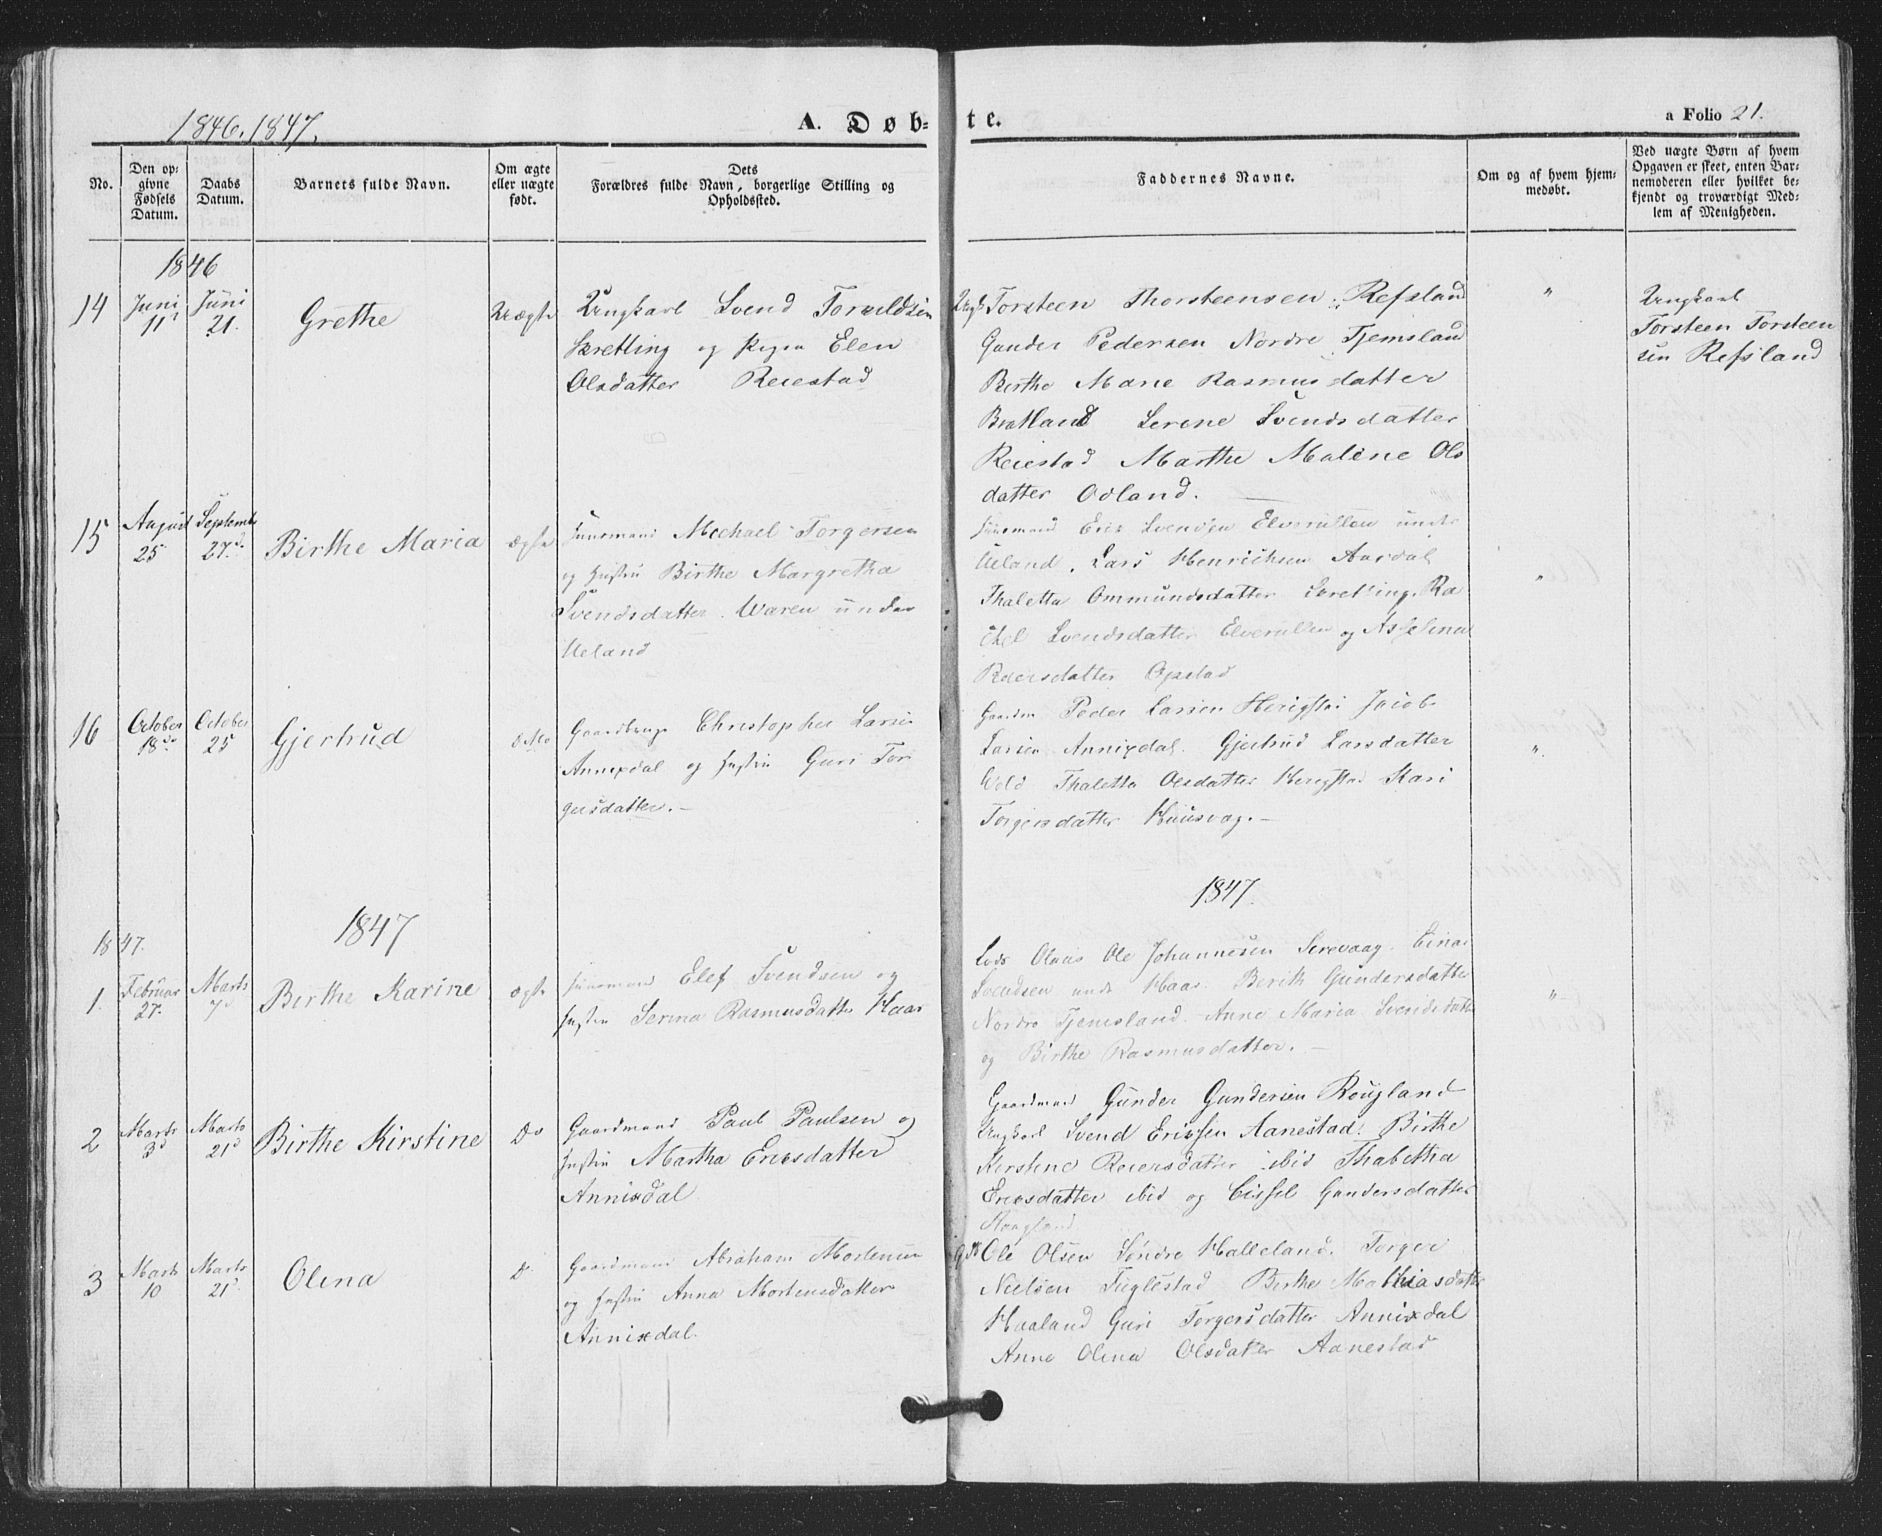 1846. 1847.
A. Døb-
te.
a Folio 21.
No.
Den op-
givne
Fødsels
Datum.
Daabs
Datum.
Barnets fulde Navn.
Om ægte
eller uægte
født.
Dets
Forældres fulde Navn, borgerlige Stilling og
Opholdssted.
Faddernes Navne.
Om og af hvem hjem-
medøbt.
Ved uægte Børn af hvem
Opgaven er skeet, enten Bar-
nemoderen eller hvilket be-
kjendt og troværdigt Med-
lem af Menigheden.
1846
14
Juni
11
Juni
21.
Grethe
Uægte
Ungkarl Svend Torvildsen
Skretting og Pigen Elen
Olsdatter Reiestad
Ungk Torsteen Thorsteensen Refsland
Gunder Pedersen Nordre Tjemsland
Birthe Marie Rasmusdatter
Bratland Serene Svendsdatter
Reiestad Marthe Maline Ols
datter Odland.
"
Ungkarl
Torsteen Torsteen
sen Refsland
15
August
25
Septemb
27.d
Birthe Maria
ægte
Huusmand Michael Torgersen
og Hustru Birthe Margretha
Svendsdatter Waren under
Ueland
Huusmand Eric Svendsen Elverullen under
Ueland. Lars Henrichsen Aardal
Thaletta Ommundsdatter Skretting. Ra
chel Svendsdatter Elverullen og Asselina
Reiersdatter Opstad
"
16
October
18de
October
25
Gjertrud
ditto
Gaardbruger Christopher Larsen
Annixdal og Hustru Guri Tor
gersdatter.-
Gaardm Peder Larsen Herigstad Jacob
Larsen Annixdal. Gjertrud Larsdatter
Wold Thaletta Olsdatter Herigstad Kari
Torgersdatter Huusvag.-
"
1847
1847.
1847.
1.
Februar
27.
Marts
7d
Birthe Karine
ægte
Huusmand Elef Svendsen og
Hustru Serina Rasmusdatter Haar
Lods Olaus Ole Johannesen Sirevaag. Einar
Svendsen unde Haar. Berith Gundersdatter
Nordre Tjemsland. Anne Maria Svendsdatter
og Birthe Rasmusdatter.-
"
2
Marts
3d
Marts
21d
Birthe Kirstine
Do
Gaardmand Paul Paulsen og
Hustru Martha Ericsdatter
Annixdal
Gaardmand Gunder Gundersen Rougland
Ungkarl Svend Ericsen Aanestad. Birthe
Kirstine Reiersdatter ibid Thabitha
Ericsdatter ibid og Cissel Gundersdatter
Rougland
3
Marts
10
Marts
21d
Olena
Do
Gaardmand Abraham Mortensen
og Hustru Anna Mortensdatter
Annixdal.
Gdb Ole Olsen Søndre Halleland. Torger
Nielsen Fuglestad Birthe Mathiasdatter
Haaland Guri Torgersdatter Annixdal
Anne Olena Olsdatter Aanestad